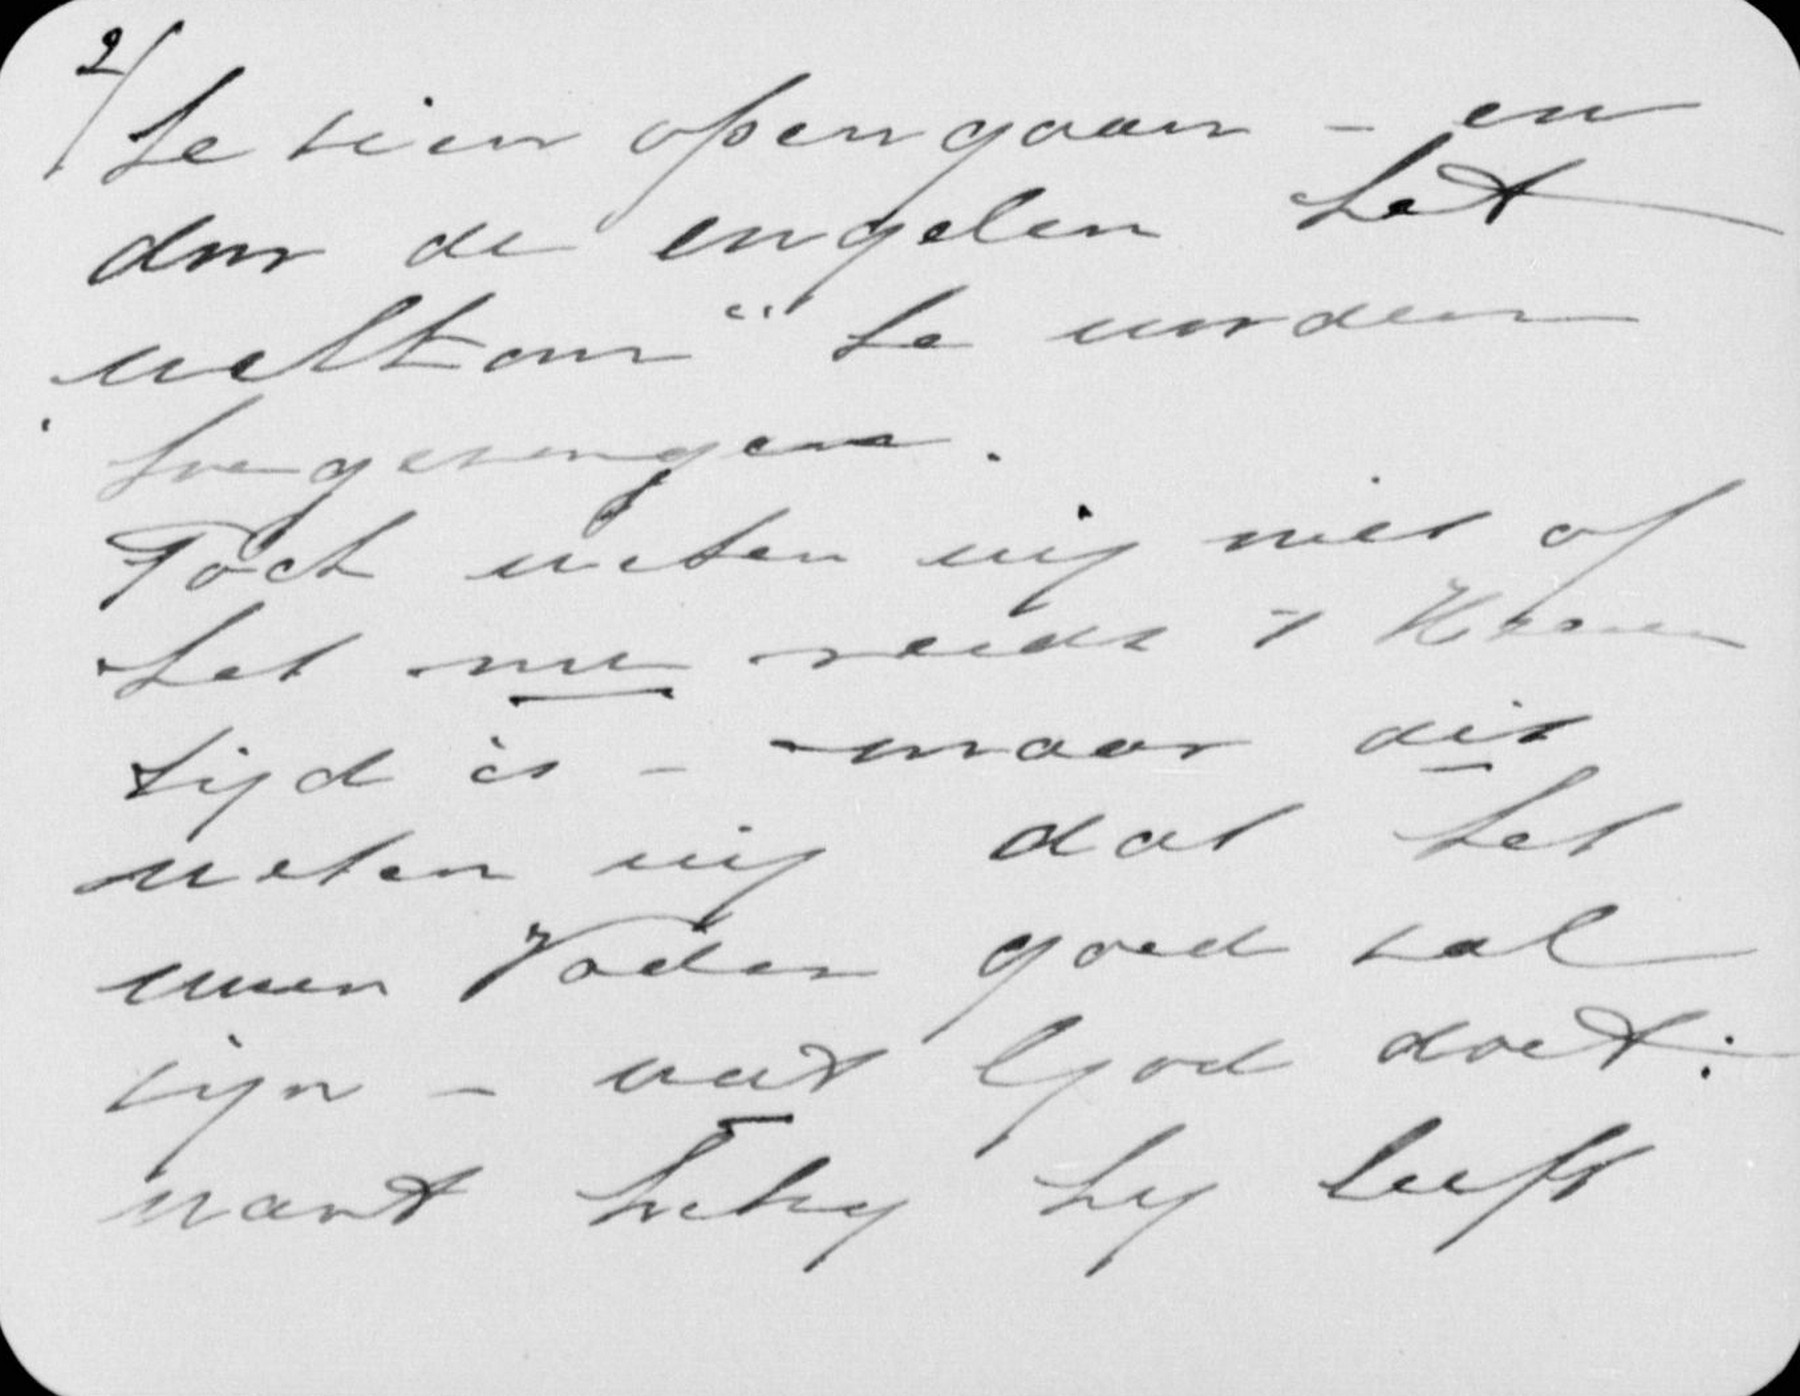 2/
te zien opengaan – en
door de engelen het
„welkom" te worden
toegezongen.
Toch weten wij niet of
het nu reeds 's Heeren
tijd is – maar dit
weten wij dat het
uwen Vader goed zal
zijn – wat God doet:
want hetzy hy leeft